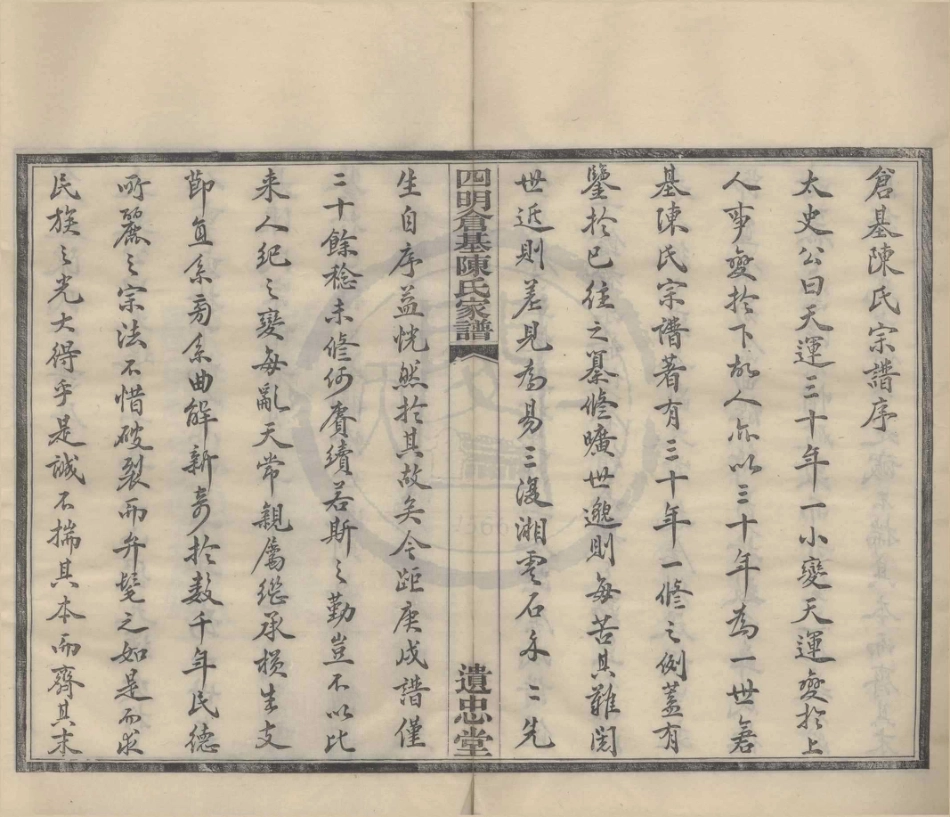 倉基陳氏宗譜序
太史公曰天運三十年一小變天運變於上
人事變於下故人亦以三十年為一世倉
基陳氏宗譜著有三十年一修之例蓋有
鑒於已往之纂修曠世邈則每苦其難閱
世近則差見為易三復湘雲石禾二先
四明倉基陳氏家譜
遺忠堂
生自序益恍然於其故矣今距庚戌譜僅
二十餘稔未修何賡續若斯之勤豈不以比
來人紀之變每亂天常親屬繼承損生支
節直系旁系曲解新奇於數千年民德
所麗之宗法不惜破裂而弁髦之如是而求
民族之光大得乎是誠不揣其本而齊其末